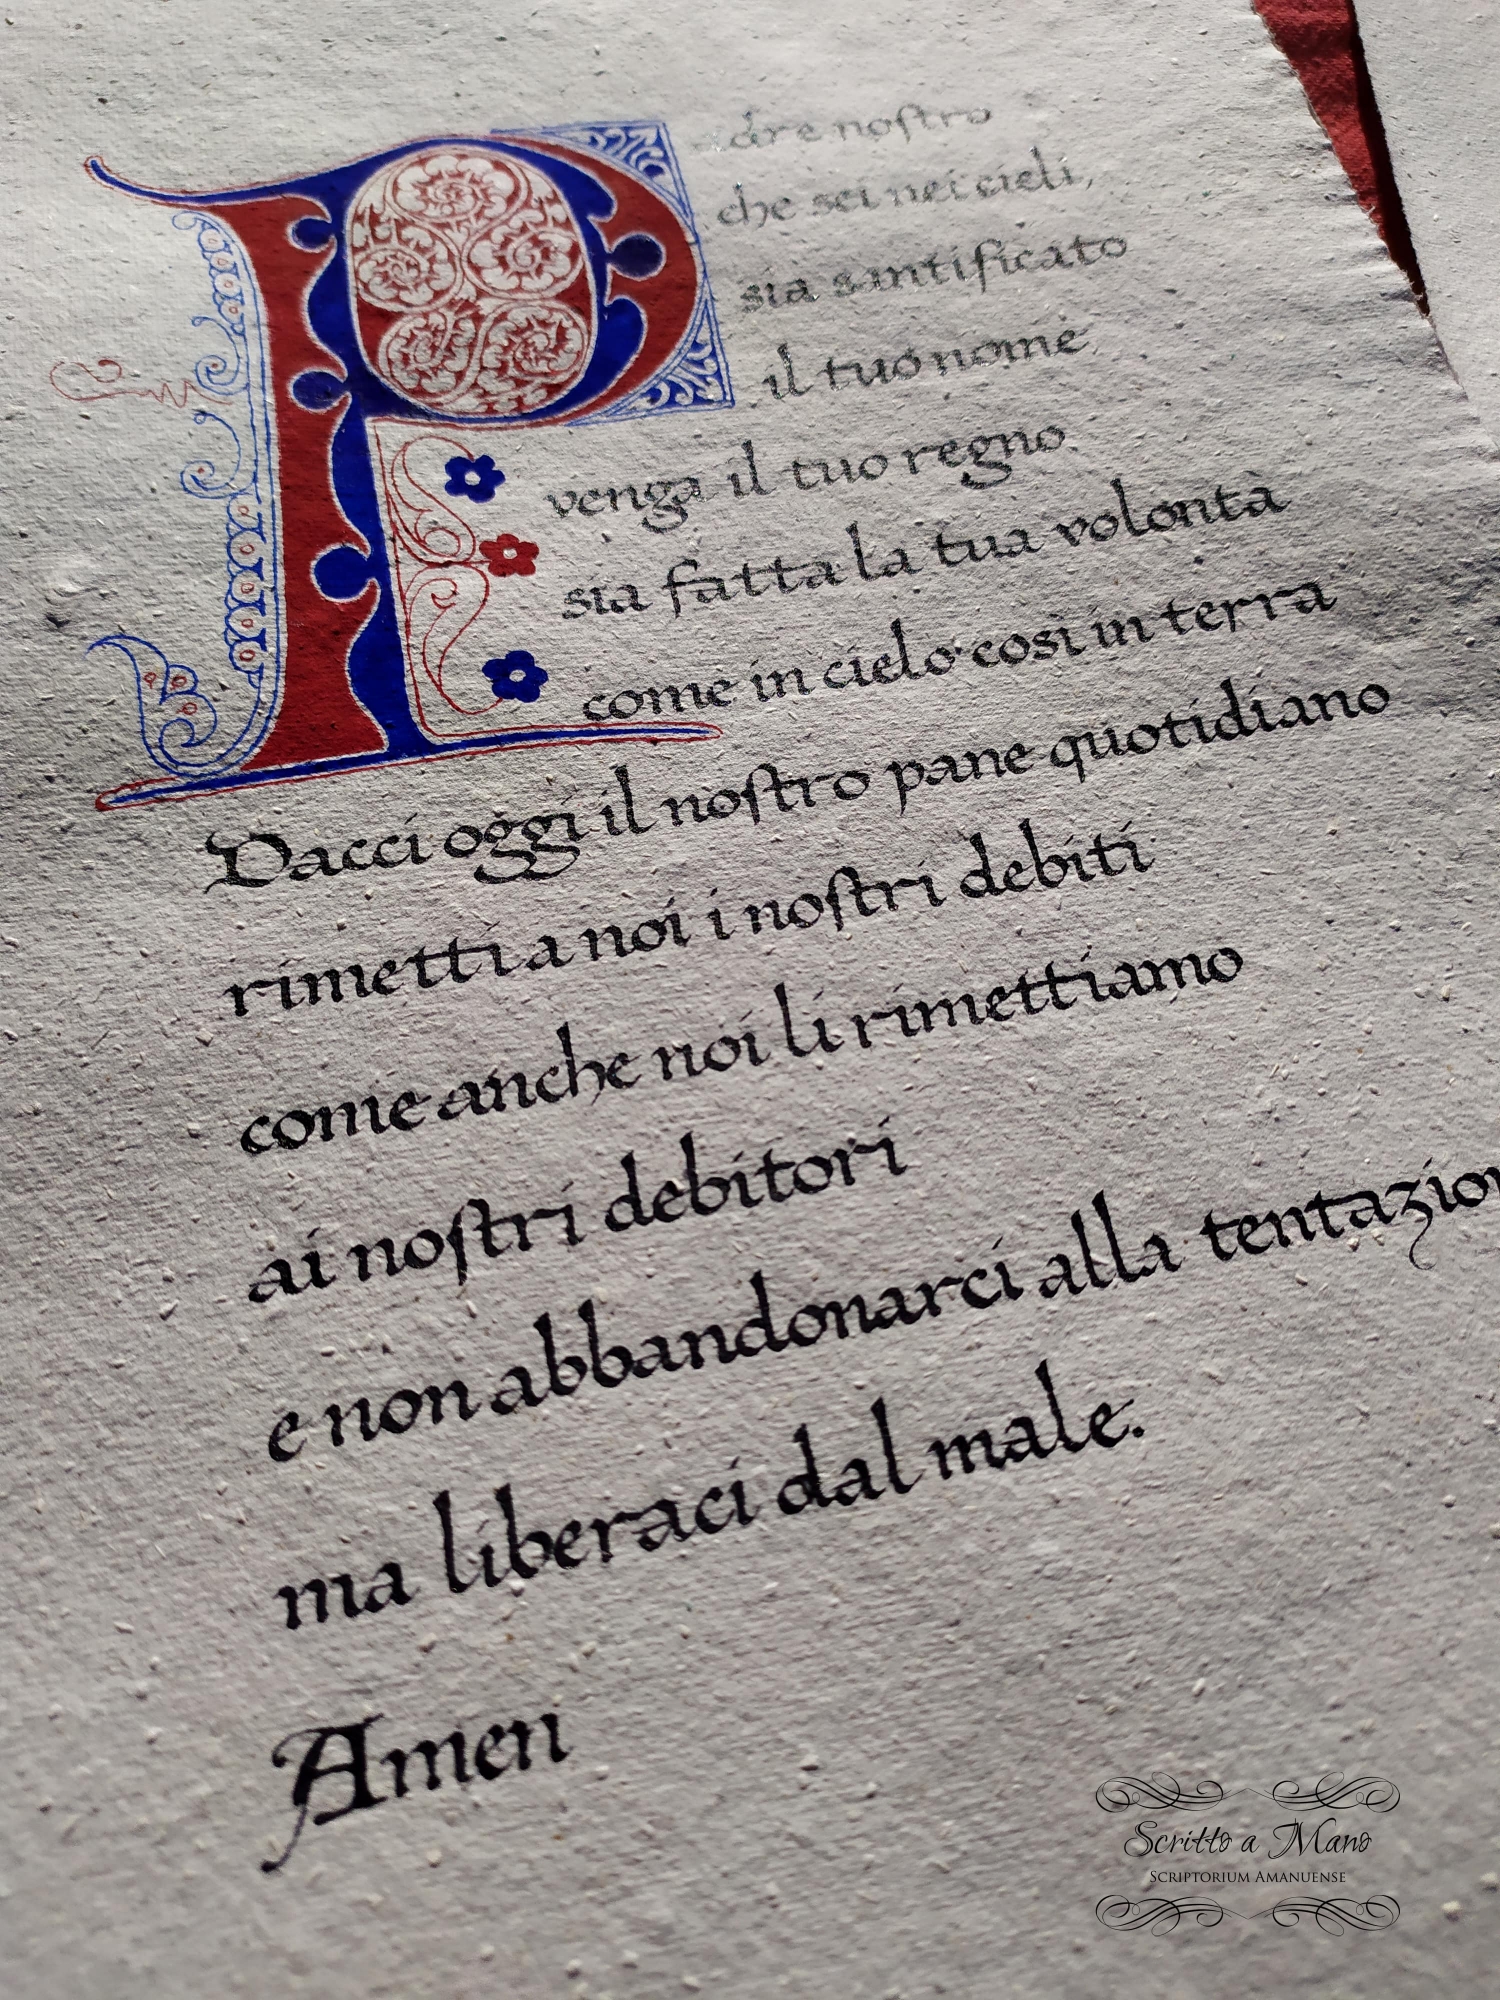 Padre nostro
che sei nei cieli,
sia santificato
il tuo nome
venga il tuo regno
sia fatta la tua volontà
come in cielo così in terra
Dacci oggi il nostro pane quotidiano
rimetti a noi i nostri debiti
come anche noi li rimettiamo
ai nostri debitori
e non abbandonarci alla tentazion
ma liberaci dal male.
Amen
Scritto a Mano
Scriptorium Amanuense